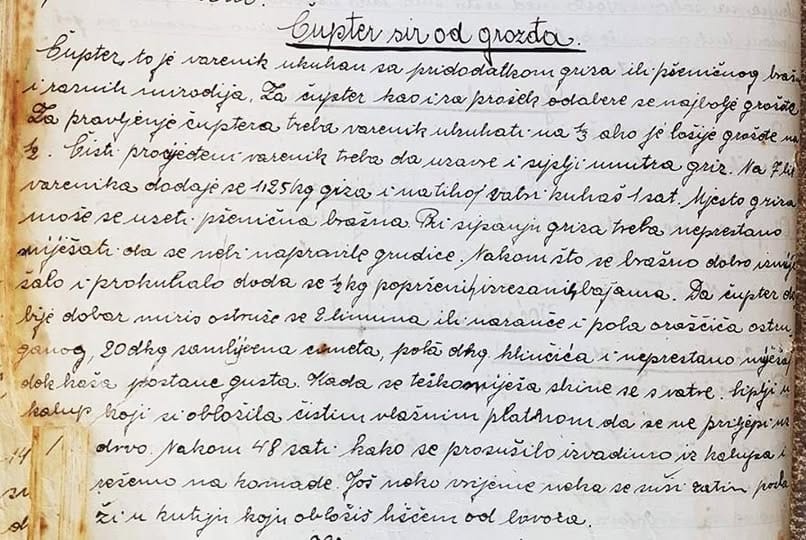 Čupter sir od grozđa.
Čupter, to je varenik ukuhan sa pridodatkom griza ili pšeničnog braš
i raznih mirodija. Za čupter kao i za prošek odabere se najbolje grožđe
Za pravljenje čuptera treba varenik ukuhati na 1/3 ako je lošije grožđe na
1/2. Čisti procjeđeni varenik treba da uzavre i siplji unutra griz. Na 7 lit
varenika dodaje se 1125 kg griza i na tihoj vatri kuhaš 1 sat. Mjesto griza
može se uzeti pšenična brašna. Pri sipanju griza treba neprestano
miješati da se nebi napravile grudice. Nakom što se brašno dobro izmije
šalo i prokuhalo doda se 1/2 kg poprženih, izrezanih bajama. Da čupter do
bije dobar miris ostruže se 2 limuna ili naranče i pola oraščića ostru
ganog, 20 dkg samljvena cimeta, pola dkg klinčića i neprestano miješaj
dok kaša postane gusta. Kada se teško miješa skine se s vatre. Siplji u
kalup koji si obložila čistim vlažnim platnom da se ne priljepi uz
drvo. Nakom 48 sati kako se prosušilo izvadimo iz kalupa i
režemo na komade. Još neko vrijeme neka se suši zatim poda
ži u kutiju koju obložiš lišćem od lovora.